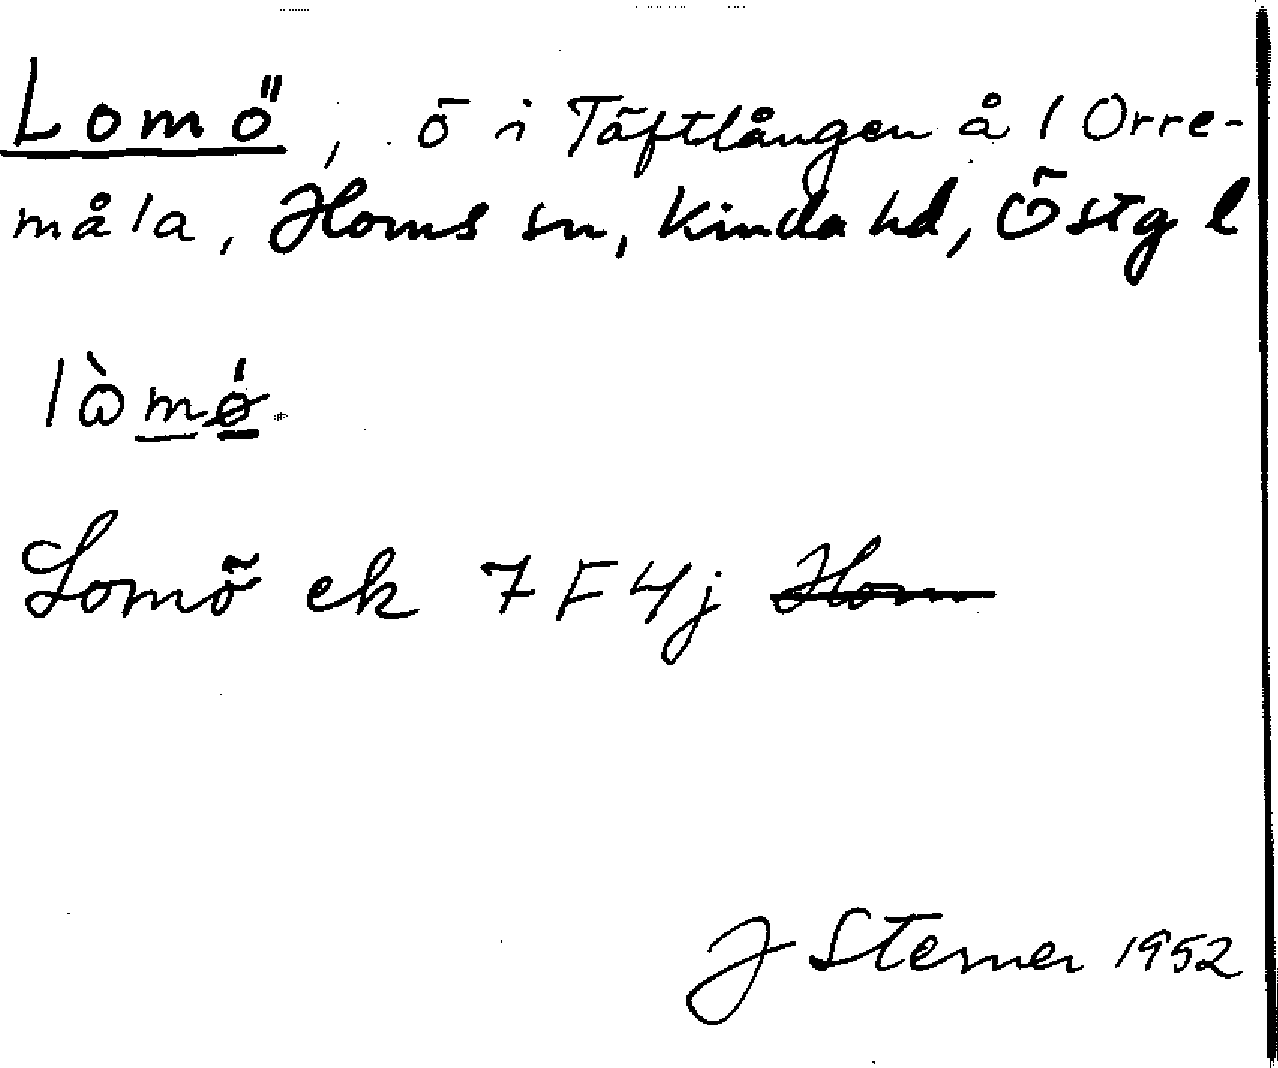 Lomö, ö i Täftlången å 1 Orre-
måla, Horns sn, Kinda hd, Östg l
lòmǿ
Lomö ek 7F4j Horn
J Sterner 1952